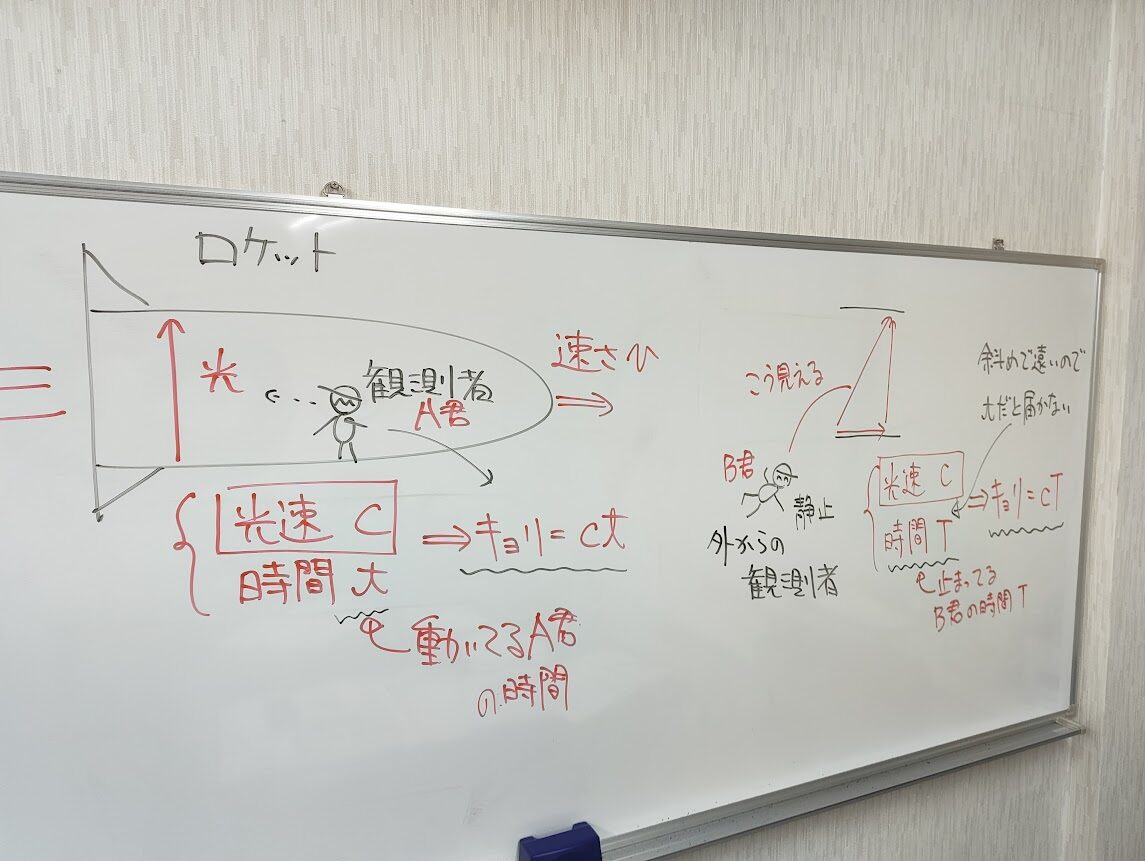 ロケット
光
観測者
A君
速さ v
光速 C
時間 t
⇒ キョリ = ct
動いてるA君
の時間
こう見える
B君
静止
外からの
観測者
余斗めで遠いので
tだと届かない
光速 C
時間 T
⇒ キョリ = cT
止まってる
B君の時間 T